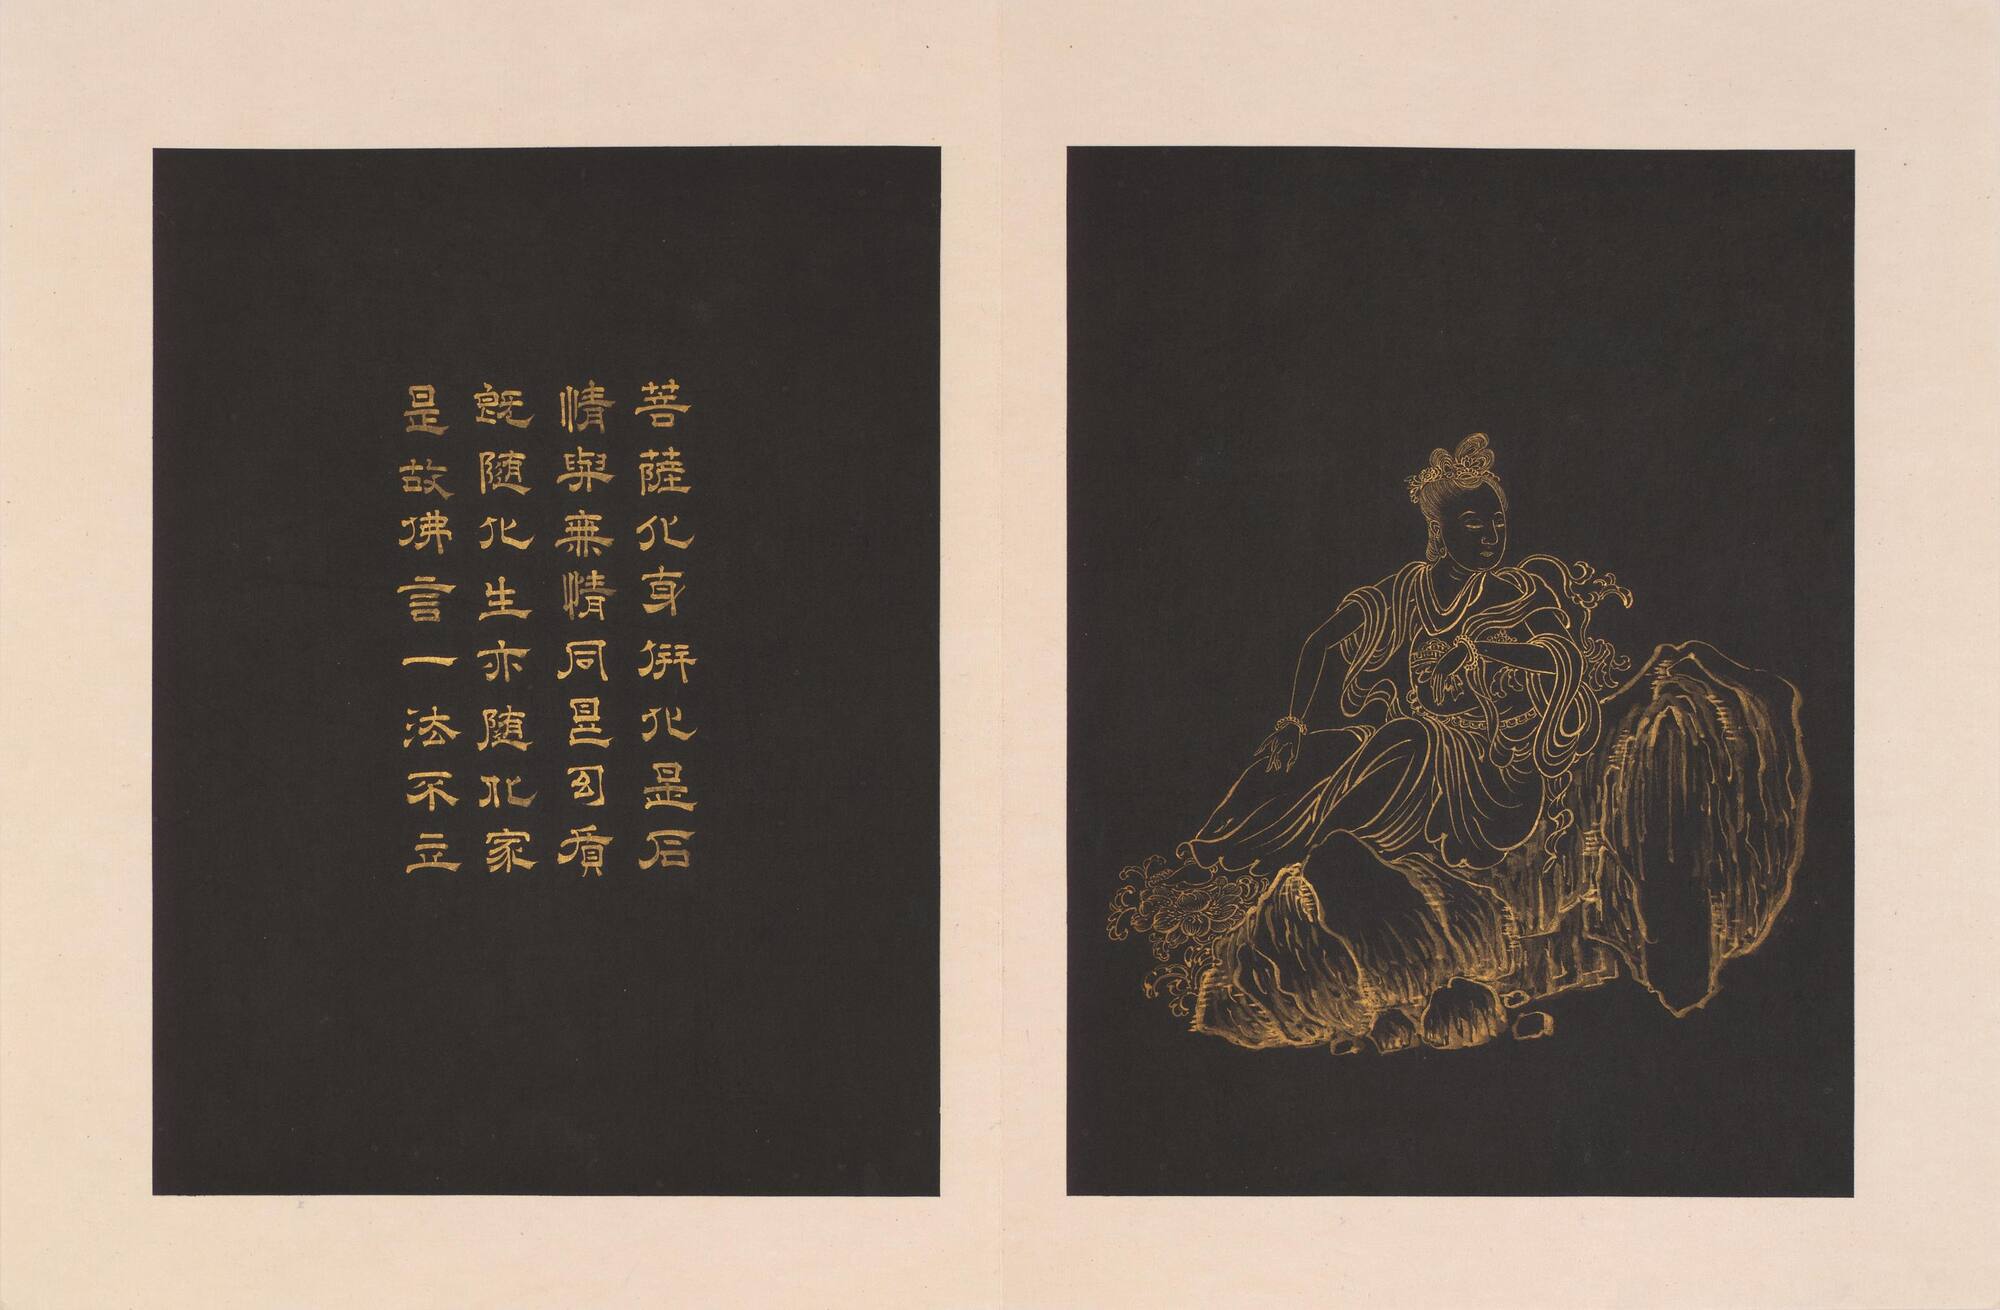 菩薩化身併化是石
情與無情同是幻質
既随化生亦随化家
是故佛言一法不立